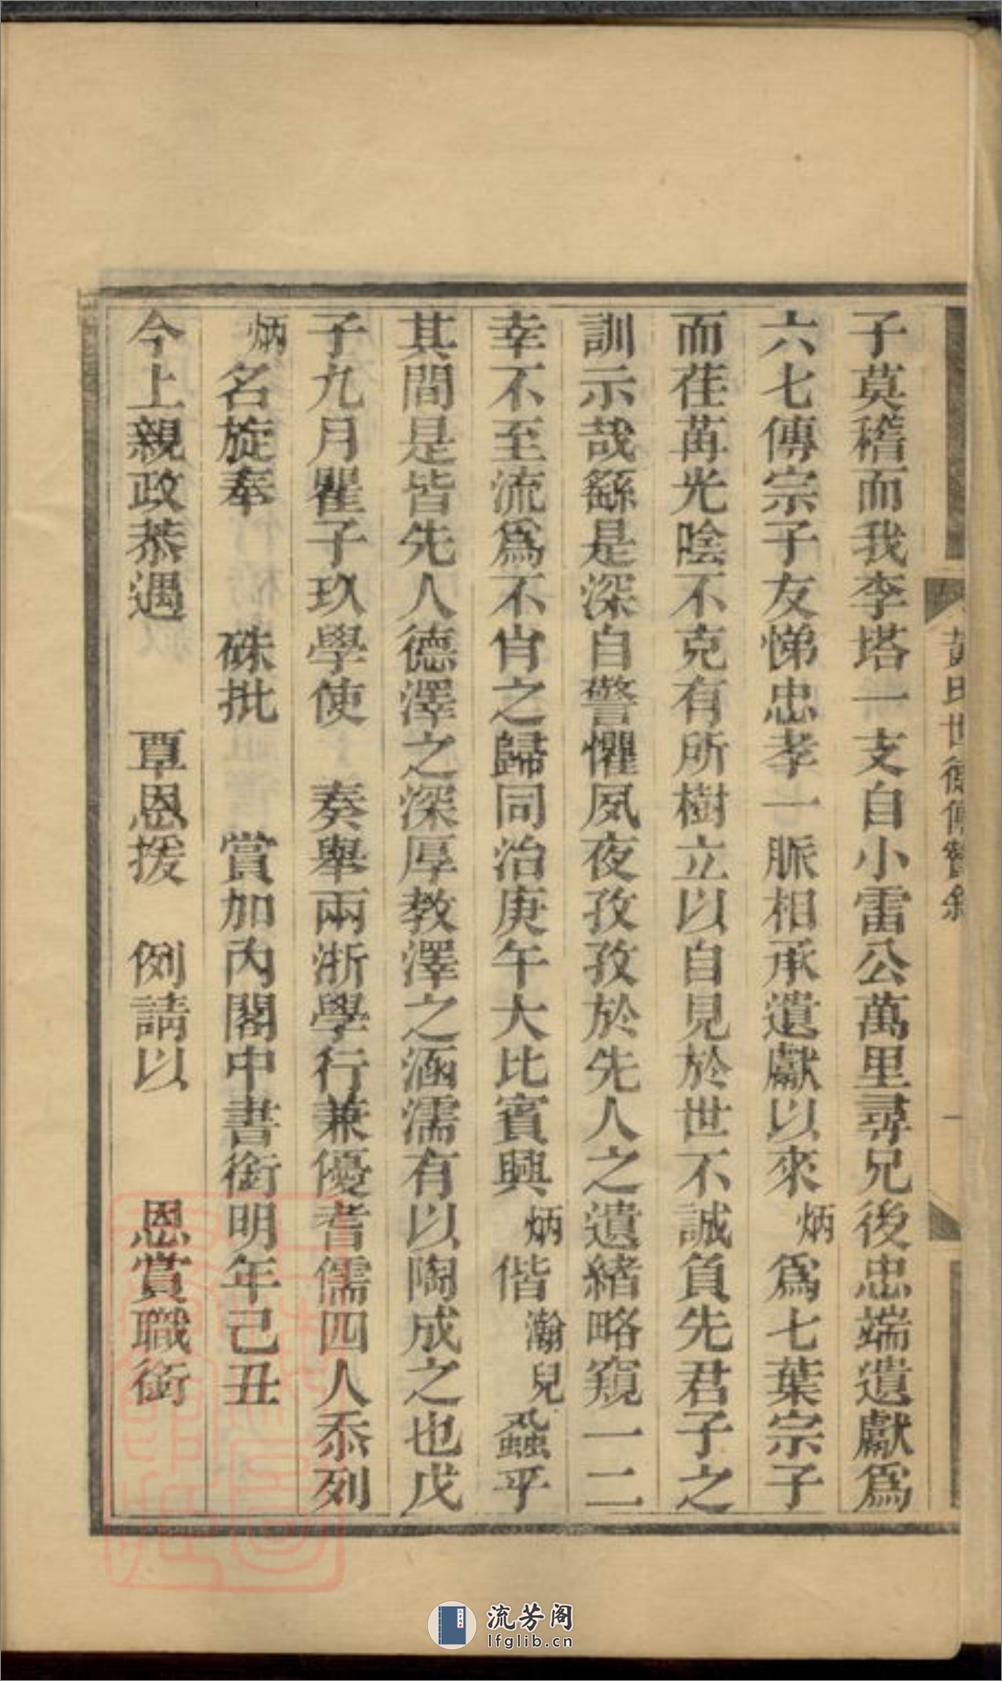 子莫稽而我李塔一支自小雷公萬里尋兄後忠端遺獻爲
六七傳宗子友悌忠孝一脈相承遺獻以來炳爲七葉宗子
而荏苒光陰不克有所樹立以自見於世不誠負先君子之
訓示哉繇是深自警懼夙夜孜孜於先人之遺緒略窺一二
幸不至流爲不肖之歸同治庚午大比賓興炳偕瀚兒蝨乎
其間是皆先人德澤之深厚教澤之涵濡有以陶成之也戊
子九月瞿子玖學使 奏舉兩浙學行兼優耆儒四人忝列
炳名旋奉 硃批 賞加內閣中書銜明年己丑
今上親政恭遇 覃恩援 例請以 恩賞職銜
黃氏世德傳贊叙
一
流芳阁
lfglib.cn